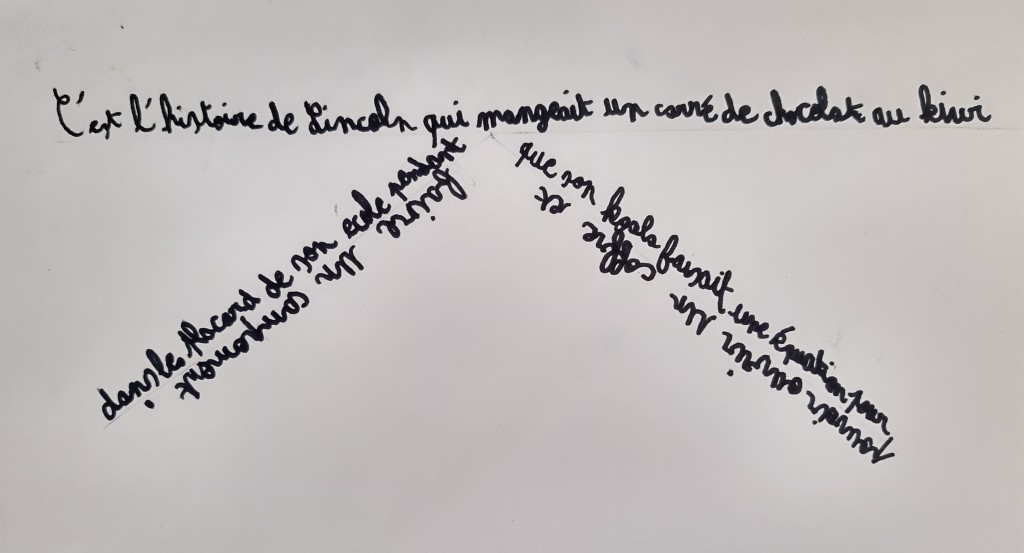 C'est l'histoire de Lincoln qui mangeait un carré de chocolat au kiwi
dans les placard de son ecole pendant
que son koala faisait une équation pour
pouvoir ouvrir un coffre et
faire un compromit.